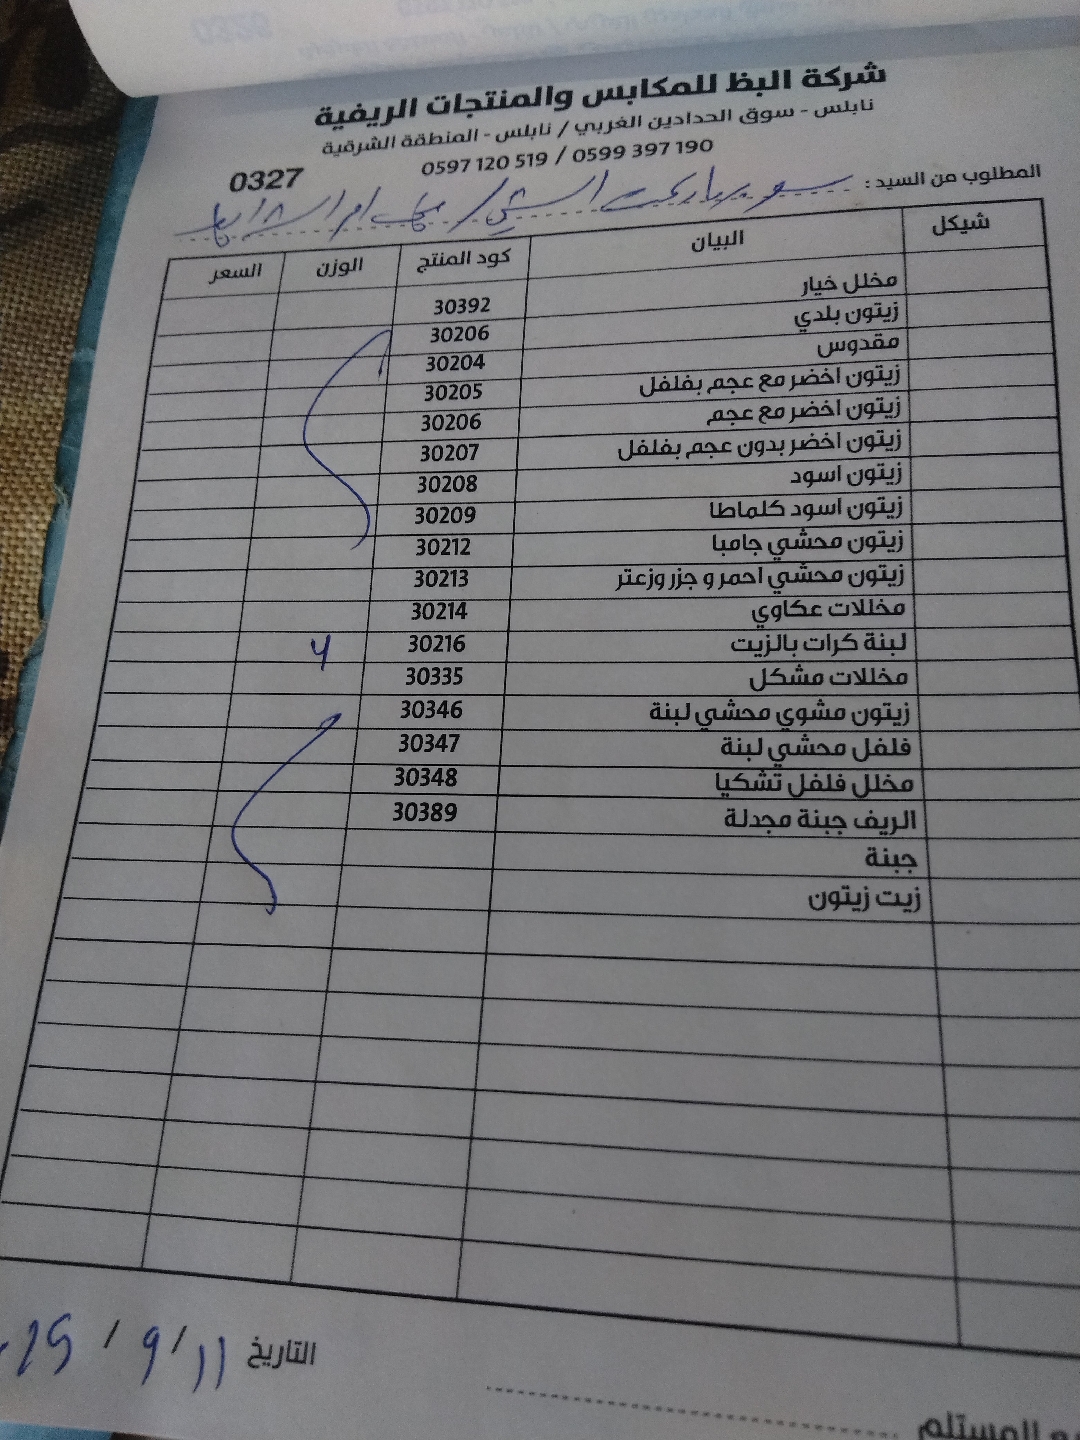 شركة البظ للمكابس والمنتجات الريفية
نابلس - سوق الحدادين الغربي / نابلس - المنطقة الشرقية
0597 120 519 / 0599 397 190
0327
المطلوب من السيد : سوبرماركت
شيكل البيان كود المنتج الوزن السعر
مخلل خيار 30392
زيتون بلدي 30206
مقدوس 30204
زيتون اخضر مع عجم بفلفل 30205
زيتون اخضر مع عجم 30206
زيتون اخضر بدون عجم بفلفل 30207
زيتون اسود 30208
زيتون اسود كلماطا 30209
زيتون محشي جامبا 30212
زيتون محشي احمر و جزر وزعتر 30213
مخللات عكاوي 30214
لبنة كرات بالزيت 30216
مخللات مشكل 30335
زيتون مشوي محشي لبنة 30346
فلفل محشي لبنة 30347
مخلل فلفل تشكيا 30348
الريف جبنة مجدلة 30389
جبنة
زيت زيتون
التاريخ 11 / 9 /
المستلم